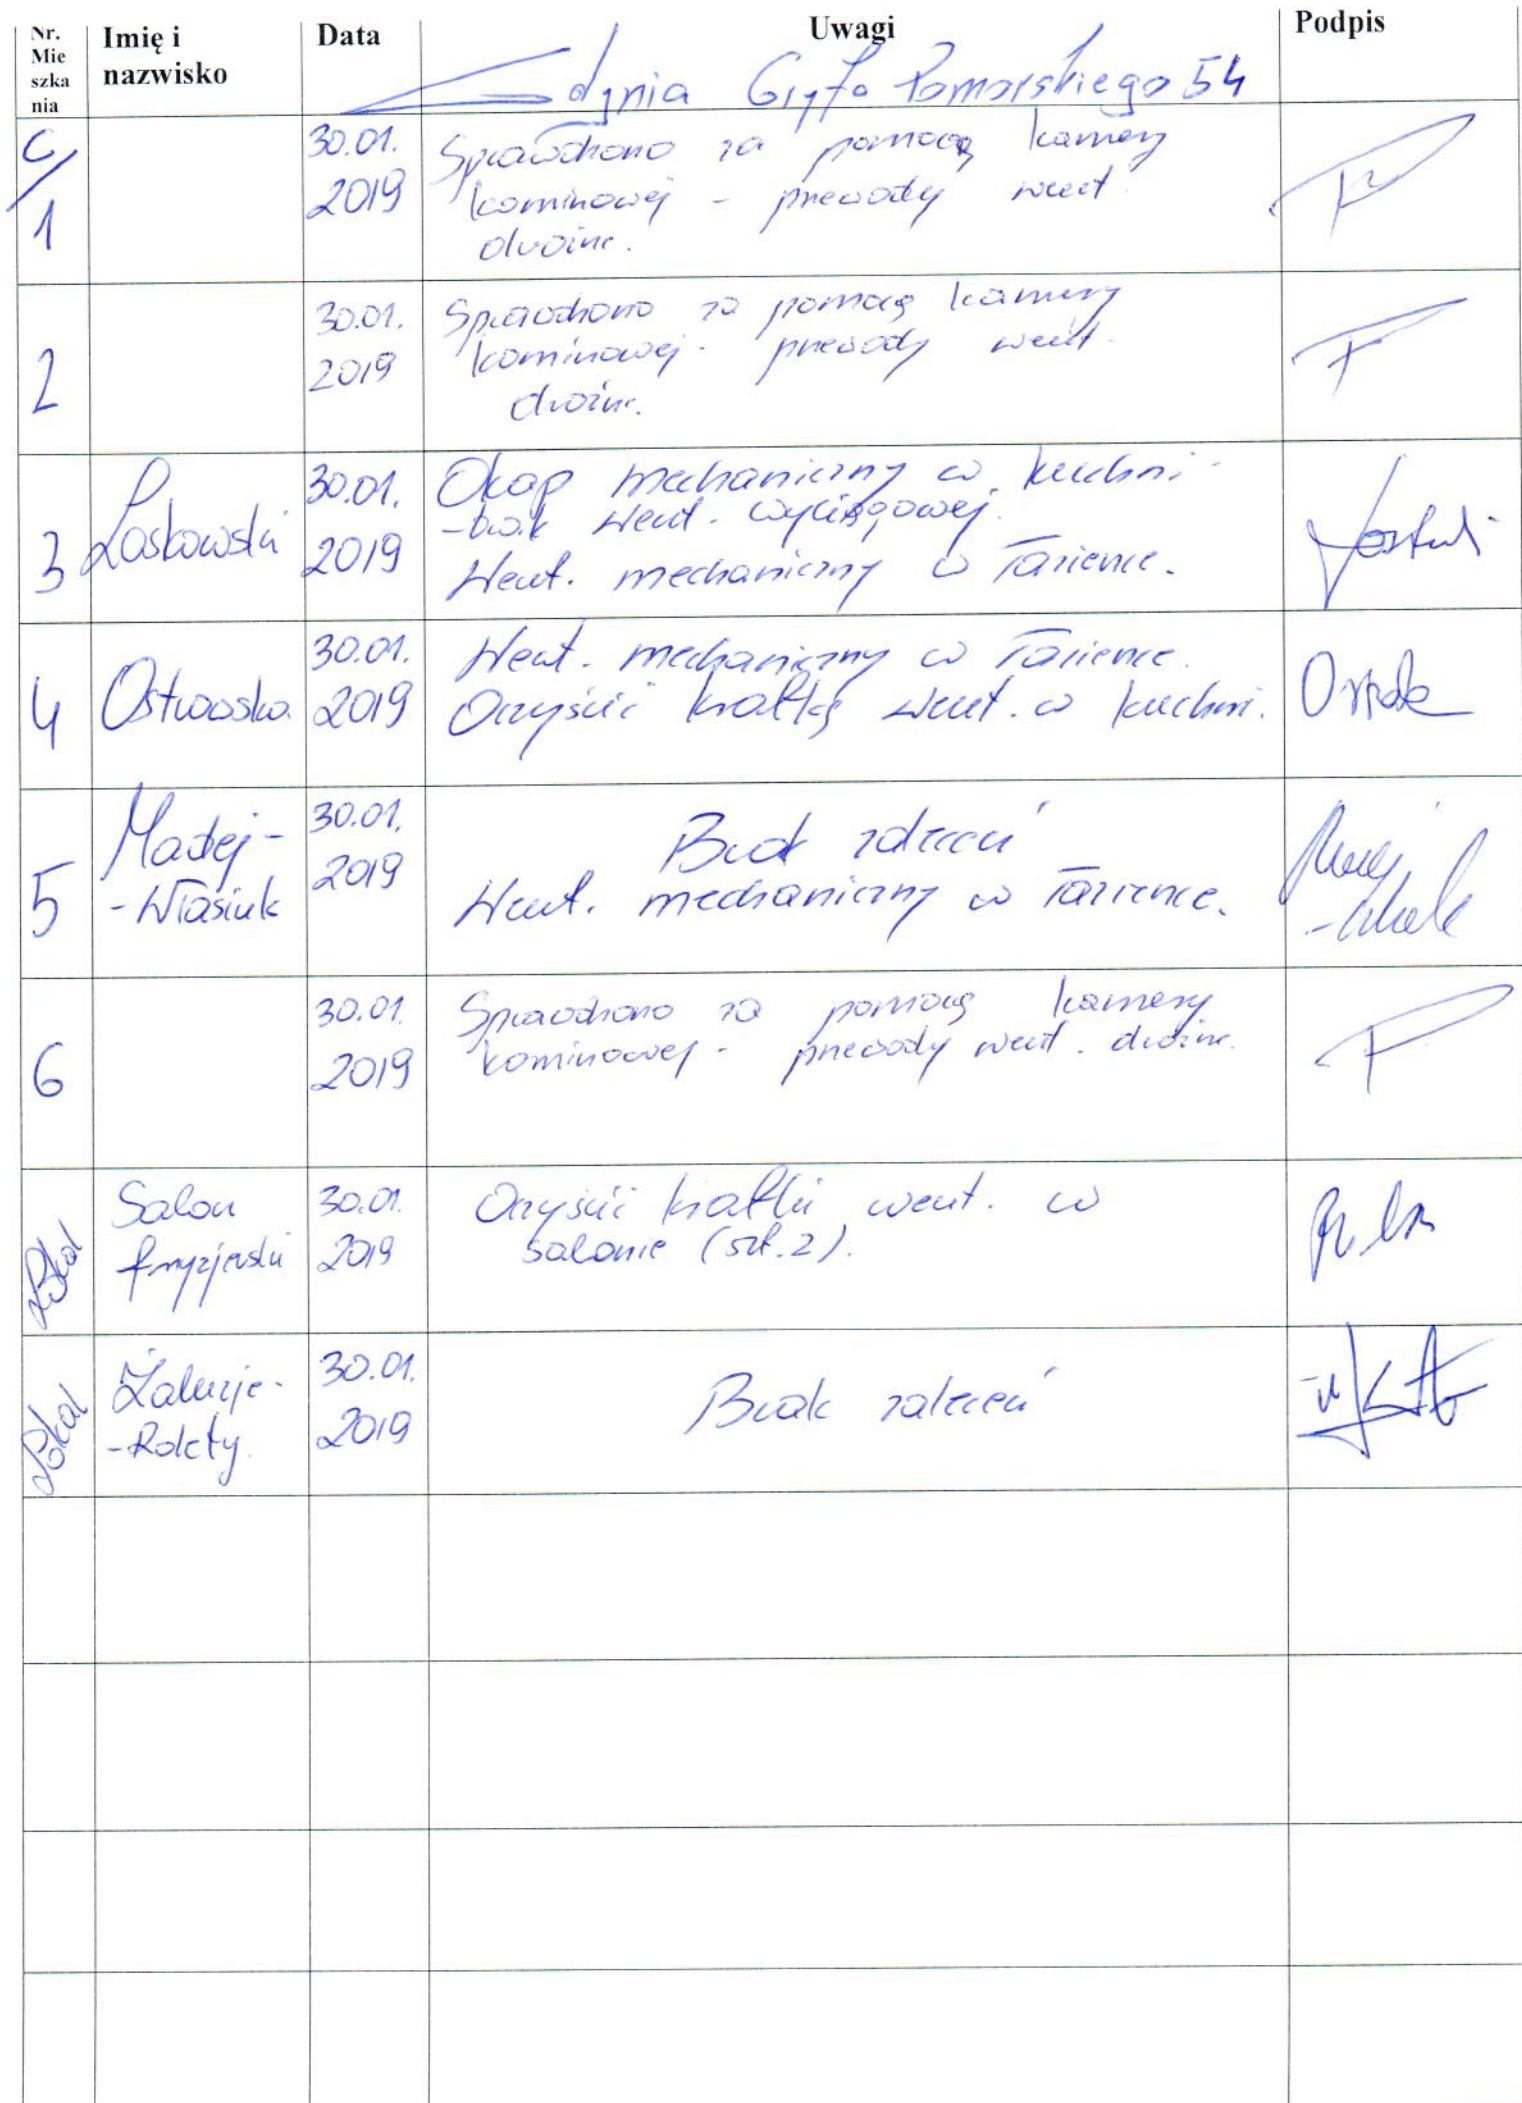 Nr. Mie szka nia Imię i nazwisko Data Uwagi Podpis
Gdynia Gryfa Pomorskiego 54
C/1 30.01.2019 Sprawdzono za pomocą kamery
kominowej - przewody went.
drożne.
2 30.01.2019 Sprawdzono za pomocą kamery
kominowej - przewody went.
drożne.
3 Laskowski 30.01.2019 Okap mechaniczny w kuchni -
- brak went. wyciągowej.
Went. mechaniczny w łazience.
4 Ostrowska 30.01.2019 Went. mechaniczny w łazience.
Oczyścić kratkę went. w kuchni.
5 Maciej-
-Własiuk 30.01.2019 Brak zaleceń
Went. mechaniczny w łazience.
6 30.01.2019 Sprawdzono za pomocą kamery
kominowej - przewody went. drożne.
Lokal Salon fryzjerski 30.01.2019 Oczyścić kratki went. w
salonie (szt. 2).
Lokal Żaluzje-
-Rolety. 30.01.2019 Brak zaleceń